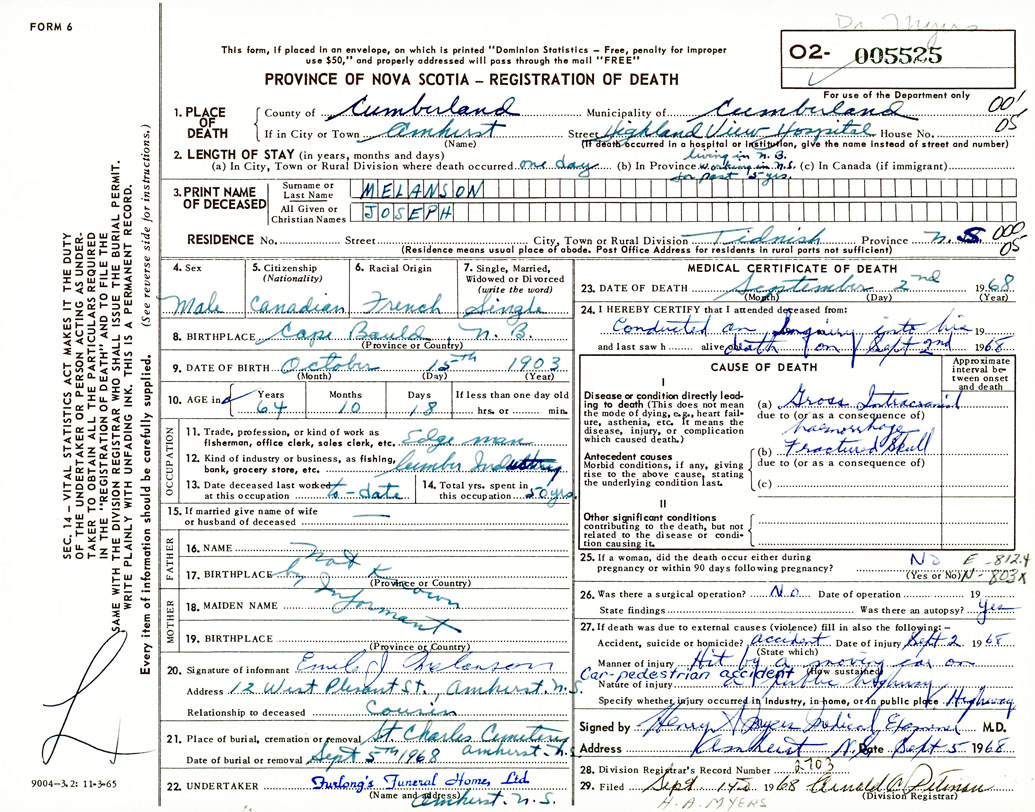 FORM 6
Dr. Myers
This form, if placed in an envelope, on which is printed "Dominion Statistics – Free, penalty for improper
use $50," and properly addressed will pass through the mail "FREE"
O2- 005525
PROVINCE OF NOVA SCOTIA – REGISTRATION OF DEATH
For use of the Department only
1. PLACE OF DEATH County of Cumberland Municipality of Cumberland 001
If in City or Town Amhirst Street Highland View Hospital House No. 05
(Name) (If death occurred in a hospital or institution, give the name instead of street and number)
2. LENGTH OF STAY (in years, months and days) living in N.B.
(a) In City, Town or Rural Division where death occurred one day (b) In Province working in N.S. (c) In Canada (if immigrant)
for past 5 yrs.
3. PRINT NAME OF DECEASED Surname or Last Name MELANSON
All Given or Christian Names JOSEPH
RESIDENCE No. Street City, Town or Rural Division Tidnish Province N.S. 000
(Residence means usual place of abode. Post Office Address for residents in rural parts not sufficient) 05
4. Sex Male
5. Citizenship (Nationality) Canadian
6. Racial Origin French
7. Single, Married, Widowed or Divorced (write the word) Single
8. BIRTHPLACE Cape Bauld N.B.
(Province or Country)
9. DATE OF BIRTH October 15th 1903
(Month) (Day) (Year)
10. AGE in Years Months Days If less than one day old
64 10 18 hrs. or min.
OCCUPATION
11. Trade, profession, or kind of work as
fisherman, office clerk, sales clerk, etc. Edge man
12. Kind of industry or business, as fishing,
bank, grocery store, etc. lumber Industry
13. Date deceased last worked
at this occupation to-date
14. Total yrs. spent in
this occupation 50 yrs.
15. If married give name of wife
or husband of deceased —
FATHER
16. NAME Not
17. BIRTHPLACE Known by
(Province or Country)
MOTHER
18. MAIDEN NAME Informant
19. BIRTHPLACE
(Province or Country)
20. Signature of informant Emile J. Melanson
Address 12 West Plesant St., Amherst, N.S.
Relationship to deceased Cousin
21. Place of burial, cremation or removal St Charles Cemetery
Amherst N.S.
Date of burial or removal Sept 5th 1968
22. UNDERTAKER Furlong's Funeral Home, Ltd
(Name and address) Amherst, N.S.
MEDICAL CERTIFICATE OF DEATH
23. DATE OF DEATH September 2nd 1968
(Month) (Day) (Year)
24. I HEREBY CERTIFY that I attended deceased from:
Conducted an Inquiry into his 19
and last saw h alive on death on Sept 2nd 1968
CAUSE OF DEATH
Approximate interval between onset and death
I
Disease or condition directly leading to death (This does not mean the mode of dying, e.g., heart failure, asthenia, etc. It means the disease, injury, or complication which caused death.)
(a) Gross Intracranial
due to (or as a consequence of)
haemorrhage
Antecedent causes
Morbid conditions, if any, giving rise to the above cause, stating the underlying condition last.
(b) Fractured Skull
due to (or as a consequence of)
(c)
II
Other significant conditions
contributing to the death, but not related to the disease or condition causing it.
25. If a woman, did the death occur either during
pregnancy or within 90 days following pregnancy? NO E-812.4
(Yes or No) N-803X
26. Was there a surgical operation? No Date of operation 19
State findings Was there an autopsy? Yes
27. If death was due to external causes (violence) fill in also the following: –
Accident, suicide or homicide? accident Date of injury Sept 2 1968
(State which)
Manner of injury Hit by a moving car on
Car-pedestrian accident (How sustained)
Nature of injury a public highway
Specify whether injury occurred in industry, in home, or in public place Highway
Signed by Henry A Myers Medical Examiner M.D.
Address Amherst N.S. Date Sept 5 1968
28. Division Registrar's Record Number 2703
29. Filed Sept. 14th 1968
(Division Registrar)
H.A. MYERS
SEC. 14 – VITAL STATISTICS ACT MAKES IT THE DUTY
OF THE UNDERTAKER OR PERSON ACTING AS UNDERTAKER TO OBTAIN ALL THE PARTICULARS REQUIRED
IN THE "REGISTRATION OF DEATH" AND TO FILE THE
SAME WITH THE DIVISION REGISTRAR WHO SHALL ISSUE THE BURIAL PERMIT.
WRITE PLAINLY WITH UNFADING INK. THIS IS A PERMANENT RECORD.
Every item of information should be carefully supplied. (See reverse side for instructions.)
9004–3.2: 11-3-65